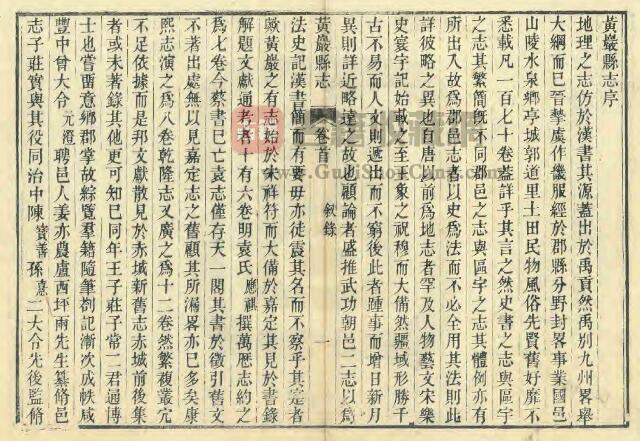 黃巖縣志序
地理之志仿於漢書其源蓋出於禹貢然禹別九州畧舉
大綱而已晉摯虞作畿服經於郡縣分野封畧事業國邑
山陵水泉鄉亭城郭道里土田民物風俗先賢舊好靡不
悉載凡一百七十卷蓋詳乎其言之然史書之志與區宇
之志其繁簡旣不同郡邑之志與區宇之志其體例亦有
所出入故爲郡邑志者以史爲法而不必全用其法則此
詳彼略之異也自唐以前爲地志者罕及人物藝文宋樂
史寰宇記始載之至王象之祝穆而大備然疆域形勝千
古不易而人文則遞出而不窮後此者踵事而增日新月
異則詳近略遠之故也顧論者盛推武功朝邑二志以爲
黃巖縣志 卷首 敘錄 一
法史記漢書簡而有要毋亦徒震其名而不察乎其定者
歟黃巖之有志始於宋祥符而大備於嘉定其見於書錄
解題文獻通考者十有六卷明袁氏應祺撰萬歷志約之
爲七卷今蔡書已亡袁志僅存天一閣其書於徵引舊文
不著出處無以見嘉定志之舊顧其所漏畧亦已多矣康
熙志演之爲八卷乾隆志又廣之爲十二卷然繁複叢冗
不足依據而是邦文獻散見於赤城新舊志赤城前後集
者或未著錄其他更可知已同年王子莊子常二君通博
士也嘗畱意鄉郡掌故綜覽羣籍隨筆劄記漸次成帙咸
豐中曾大合元澄聘邑人姜亦農盧西坪兩先生纂脩邑
志子莊實與其役同治中陳寶善孫憙二大合先後監脩